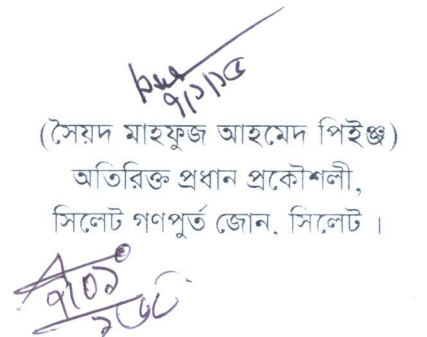 ৭/১/১৫
(সৈয়দ মাহফুজ আহমেদ পিইঞ্জ)
অতিরিক্ত প্রধান প্রকৌশলী,
সিলেট গণপূর্ত জোন, সিলেট ।